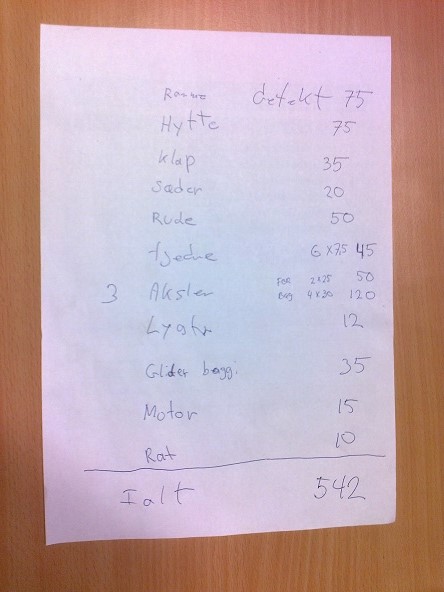 Ramme defekt 75
Hytte 75
Klap 35
Sæder 20
Rude 50
fjedre 6 x 7,5 45
For 2 x 25 50
3 Aksler Bag 4 x 30 120
Lygter 12
Glider bagg. 35
Motor 15
Rat 10
I alt 542